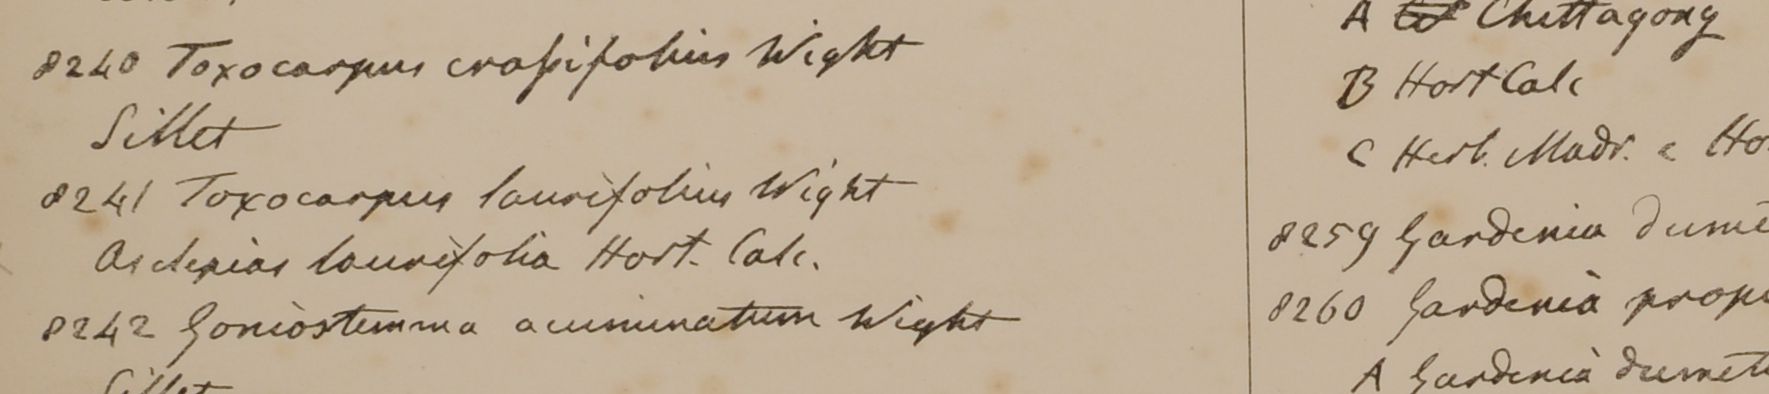 8240 Toxocarpus crassifolius Wight
Sillet
8241 Toxocarpus laurifolius Wight
Asclepias laurifolia Hort. Calc.
8242 Goniostemma acuminatum Wight
Sillet
A Chittagong
B Hort Calc
C Herb. Madr. e Ho
8259 Gardenia dume
8260 Gardenia prope
A Gardenia dumet